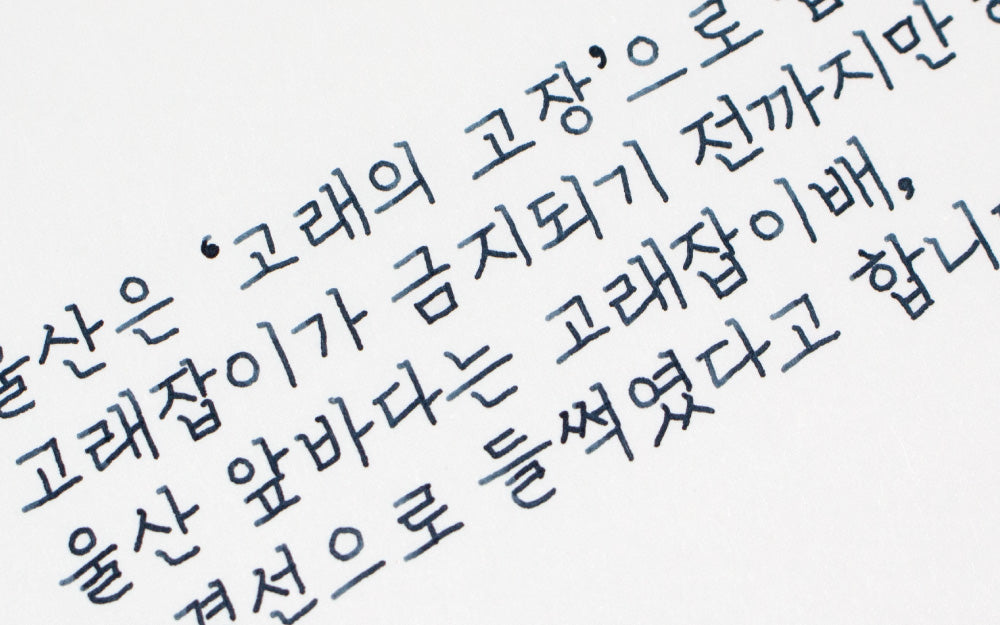 울산은 ‘고래의 고장’으로
고래잡이가 금지되기 전까지만
울산 앞바다는 고래잡이배,
경선으로 들썩였다고 합니